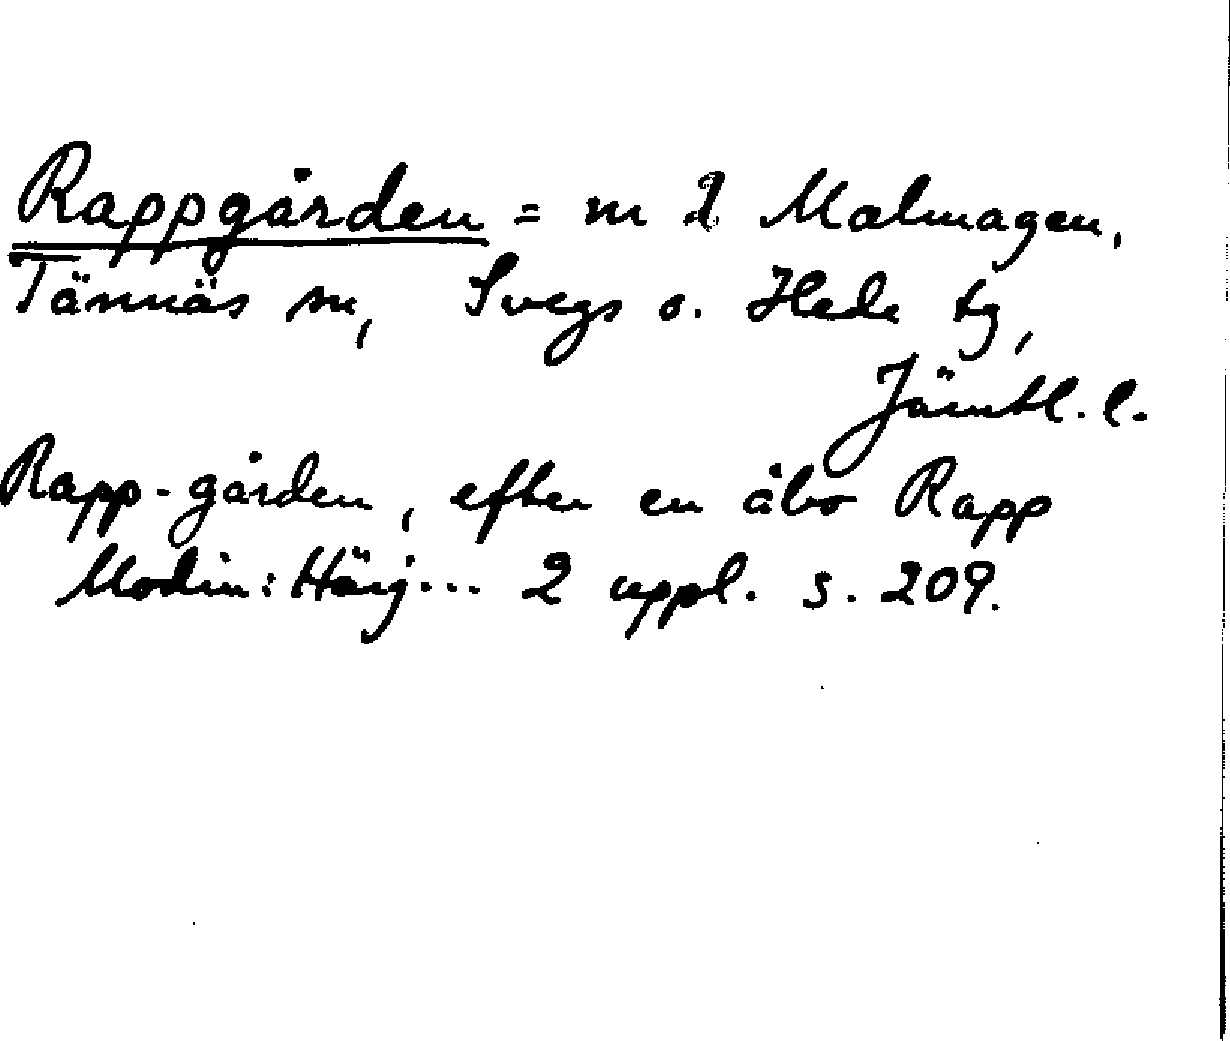 Rappgården = nr 2 Malmagen,
Tännäs sn, Svegs o. Hede tg,
Jämtl. l.
Rapp-gården, efter en åbo Rapp
Modin: Härj... 2 uppl. s. 209.